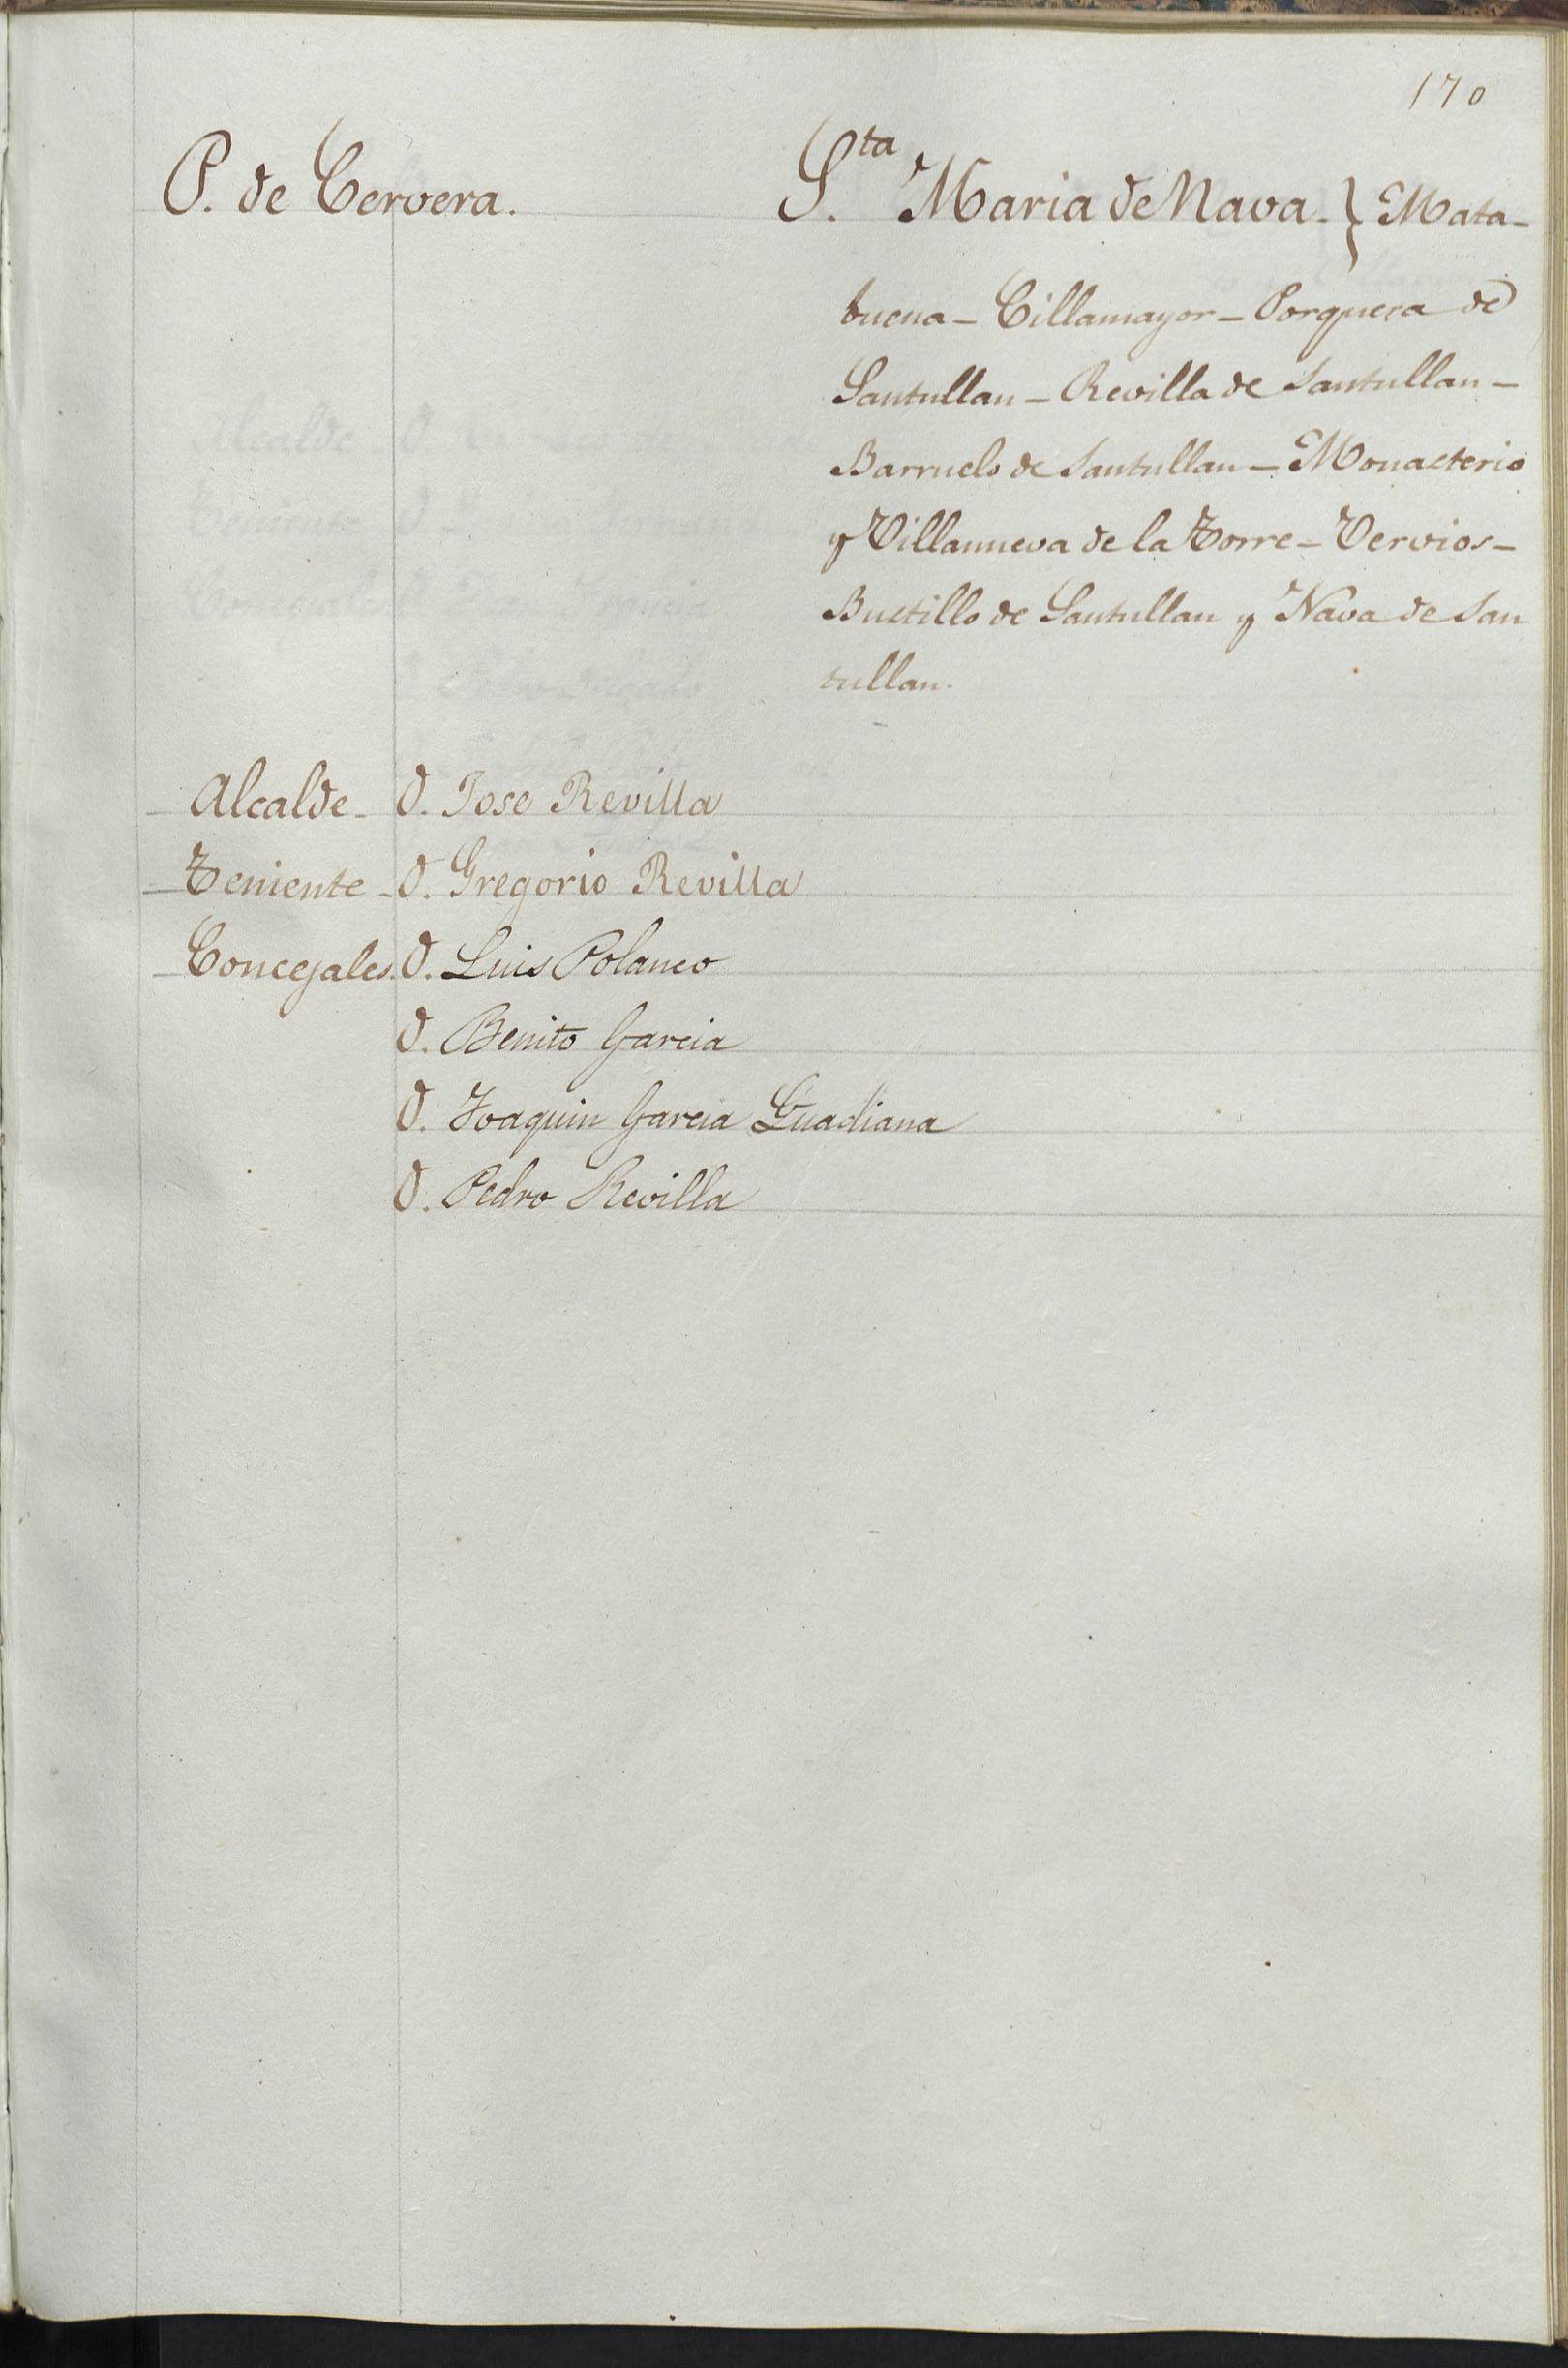 170
P. de Cervera.
S.ta Maria de Nava. } Mata-
buena - Cillamayor - Porquera de
Santullan - Revilla de Santullan -
Barruelo de Santullan - Monasterio
y Villanueva de la Torre - Vervios -
Bustillo de Santullan y Nava de San
tullan.
Alcalde - D. Jose Revilla
Teniente - D. Gregorio Revilla
Concejales. D. Luis Polanco
D. Benito Garcia
D. Joaquin Garcia Guadiana
D. Pedro Revilla